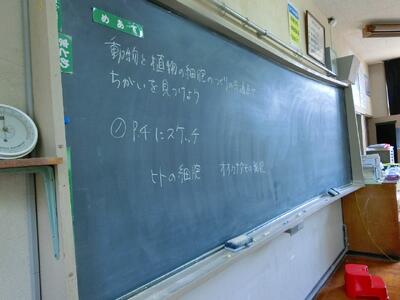 めあて
動物と植物の細胞のつくりの共通点や
ちがいを見つけよう
① P.4にスケッチ
ヒトの細胞 オオカナダモの細胞